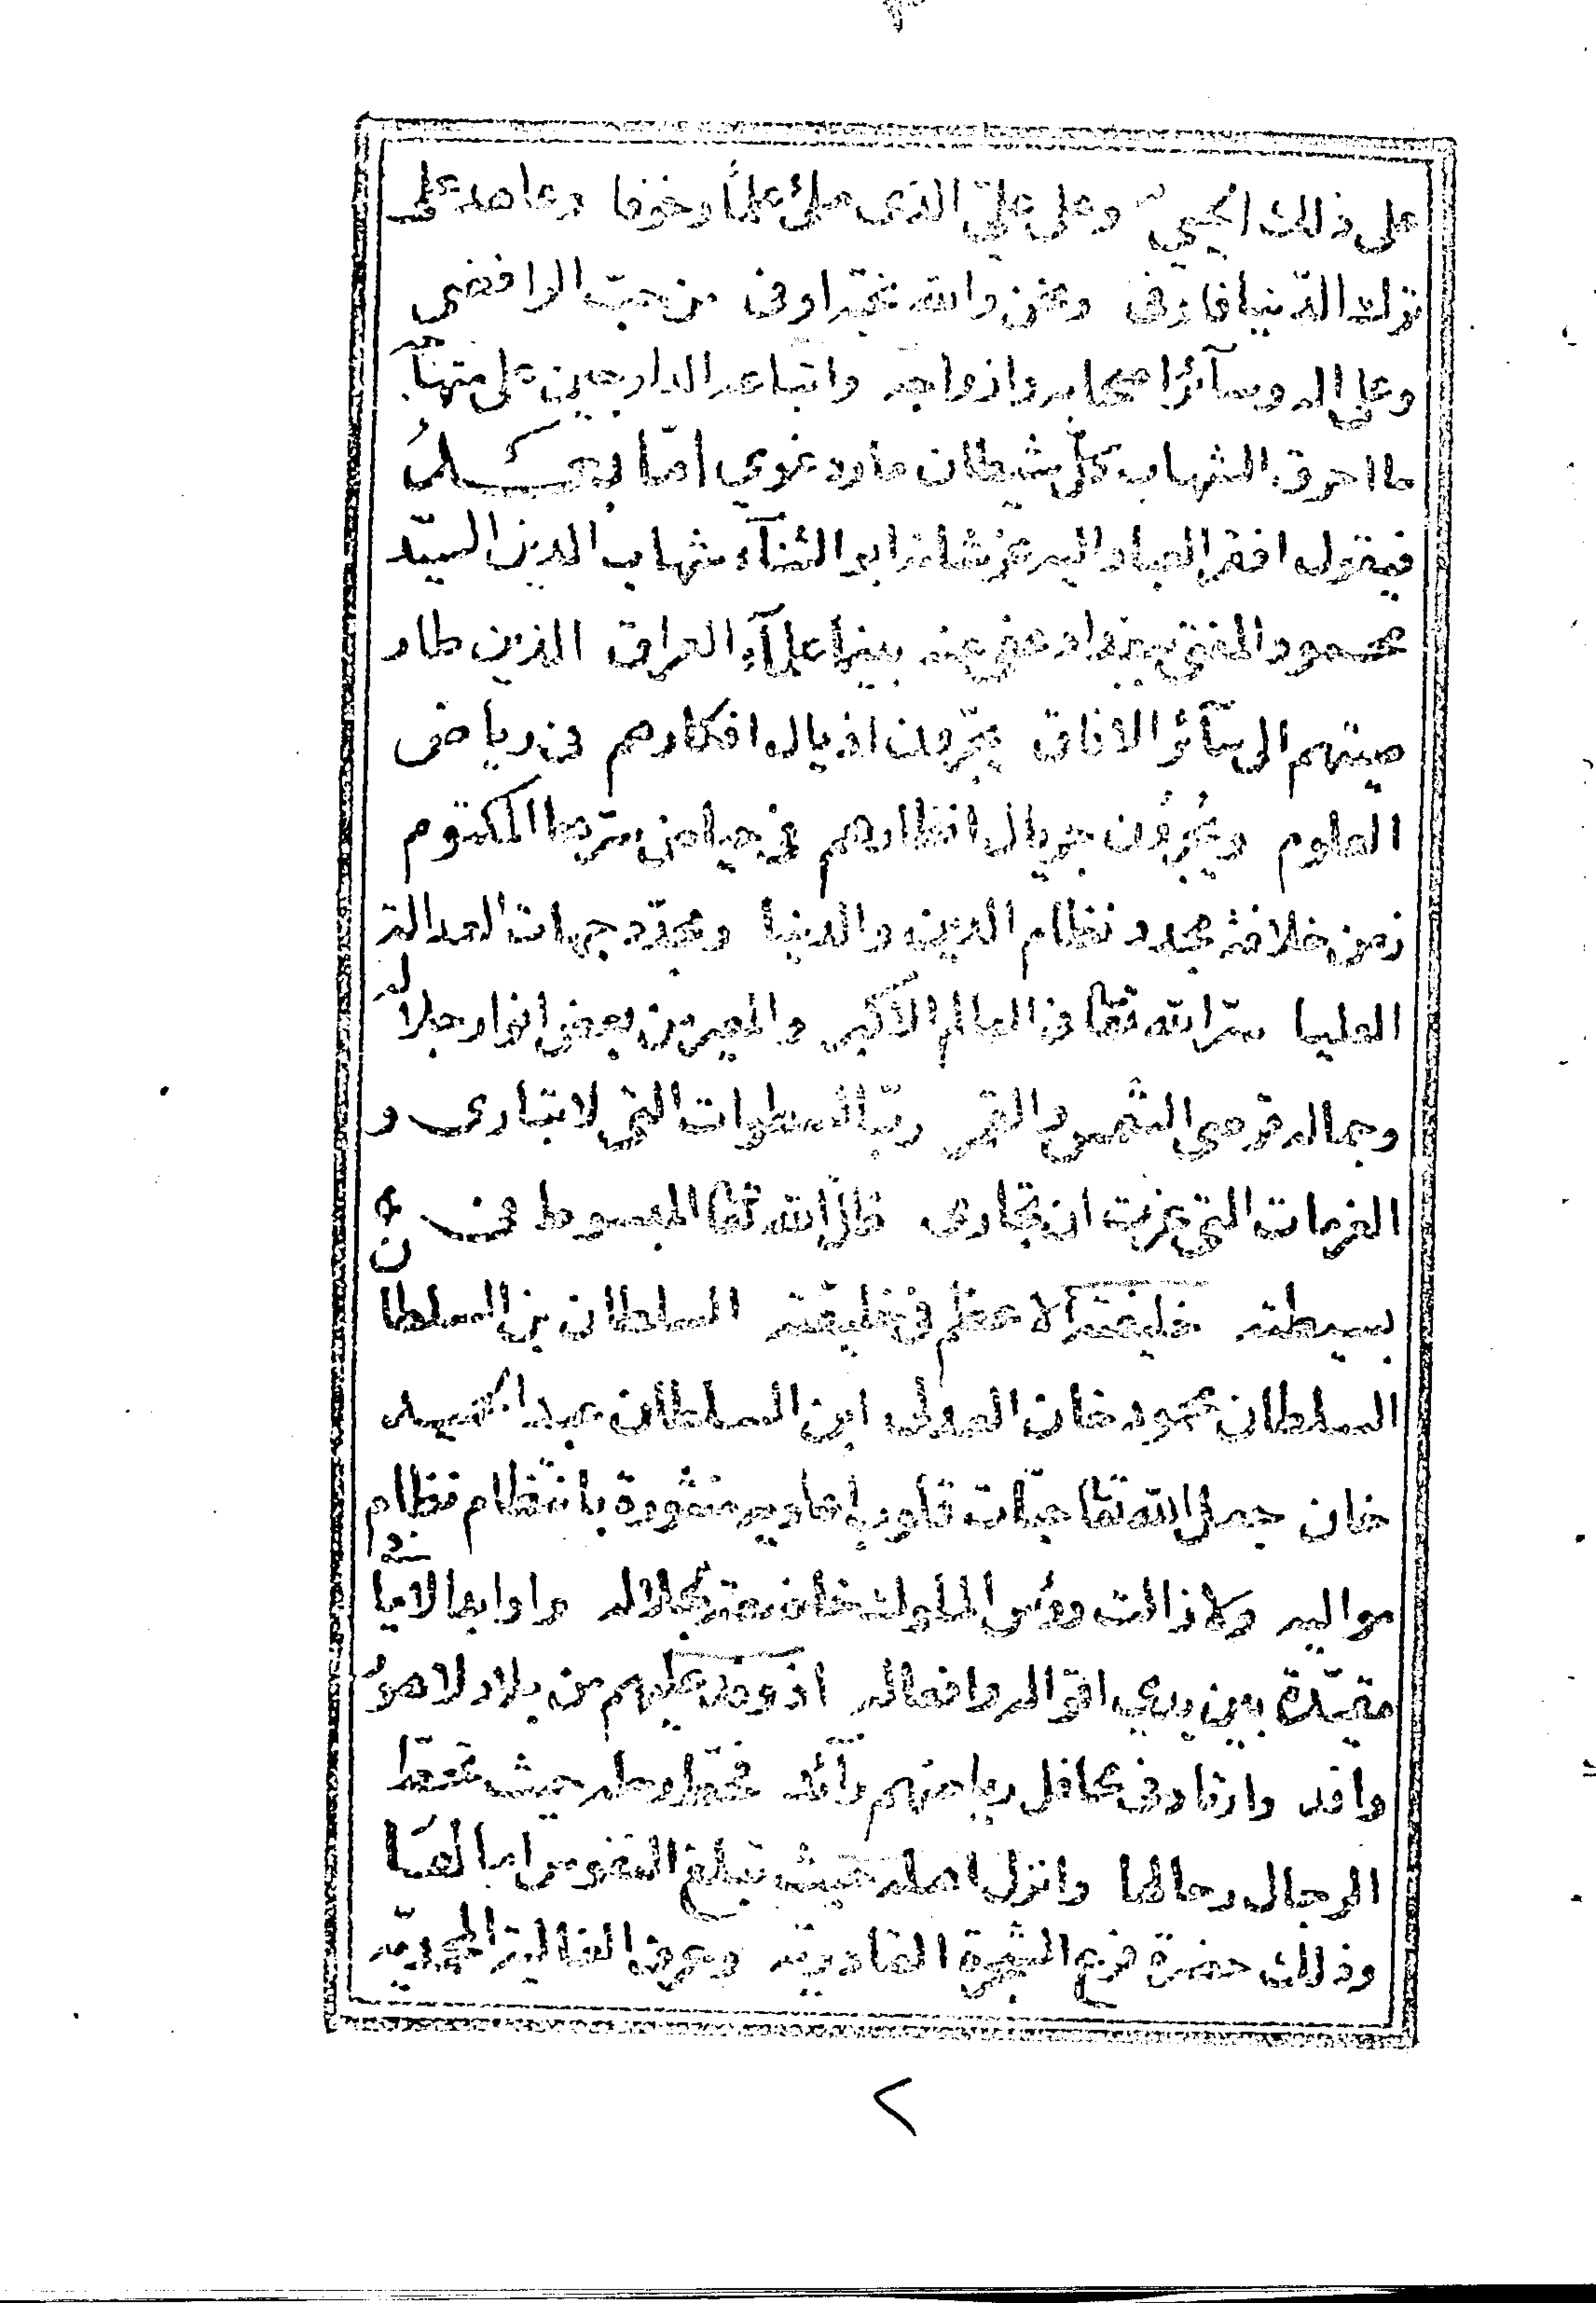 على ذلك الحيي وعلى علي الذي ملئ علما وخوفا وعاهد على
ترك الدنيا فاوفى ونحن والله نحبه اوفى من حب الرافضي
وعلى اله وسآئر اصحابه وازواجه واتباعه الدارجين على
ما احرق الشهاب كل شيطان مارد غوي امّا بعــد
فيقول افقر العباد اليه عز شانه ابو الثنآء شهاب الدين السيّد
محمود المفتي ببغداد عفي عنه بينا علمآء العراق الذين طار
صيتهم الى سآئر الافاق يجرّون اذيال افكارهم في رياض
العلوم ويجرون جريال انظارهم في حياض سرها المكتوم
زمن خلافة مجدد نظام الدين والدنيا ومحدّد جهات العدالة
العليا سرّ الله تعا في العالم الاكبر والمعير من بعض انوار جلاله
وجماله قرصي الشمس والقمر ربّ السطوات التي لا تبارى و
العزمات التي عزت ان تجارى ظل الله تعا المبسوط في
بسيطته خليفته الاعظم في خليقته السلطان بن السلطان
السلطان محمود خان العدلي ابن السلطان عبد الحميد
خان جعل الله تعا حبّات قلوب اعاديه منثورة بانتظام نظام
مواليه ولا زالت رؤس الملوك خاضعة لجلاله وادابها
مقيّدة بين يدي اقواله وافعاله اذ وفد عليهم من بلاد لاهور
وافد وارتاد في محافل رياضهم رآئد فحط رحله حيث تحط
الرجال رحالها وانزل امله حيث تبلغ النفوس
وذلك حضرة فرع الشجرة القادرية وعرف الغالية المحمديّه
٢